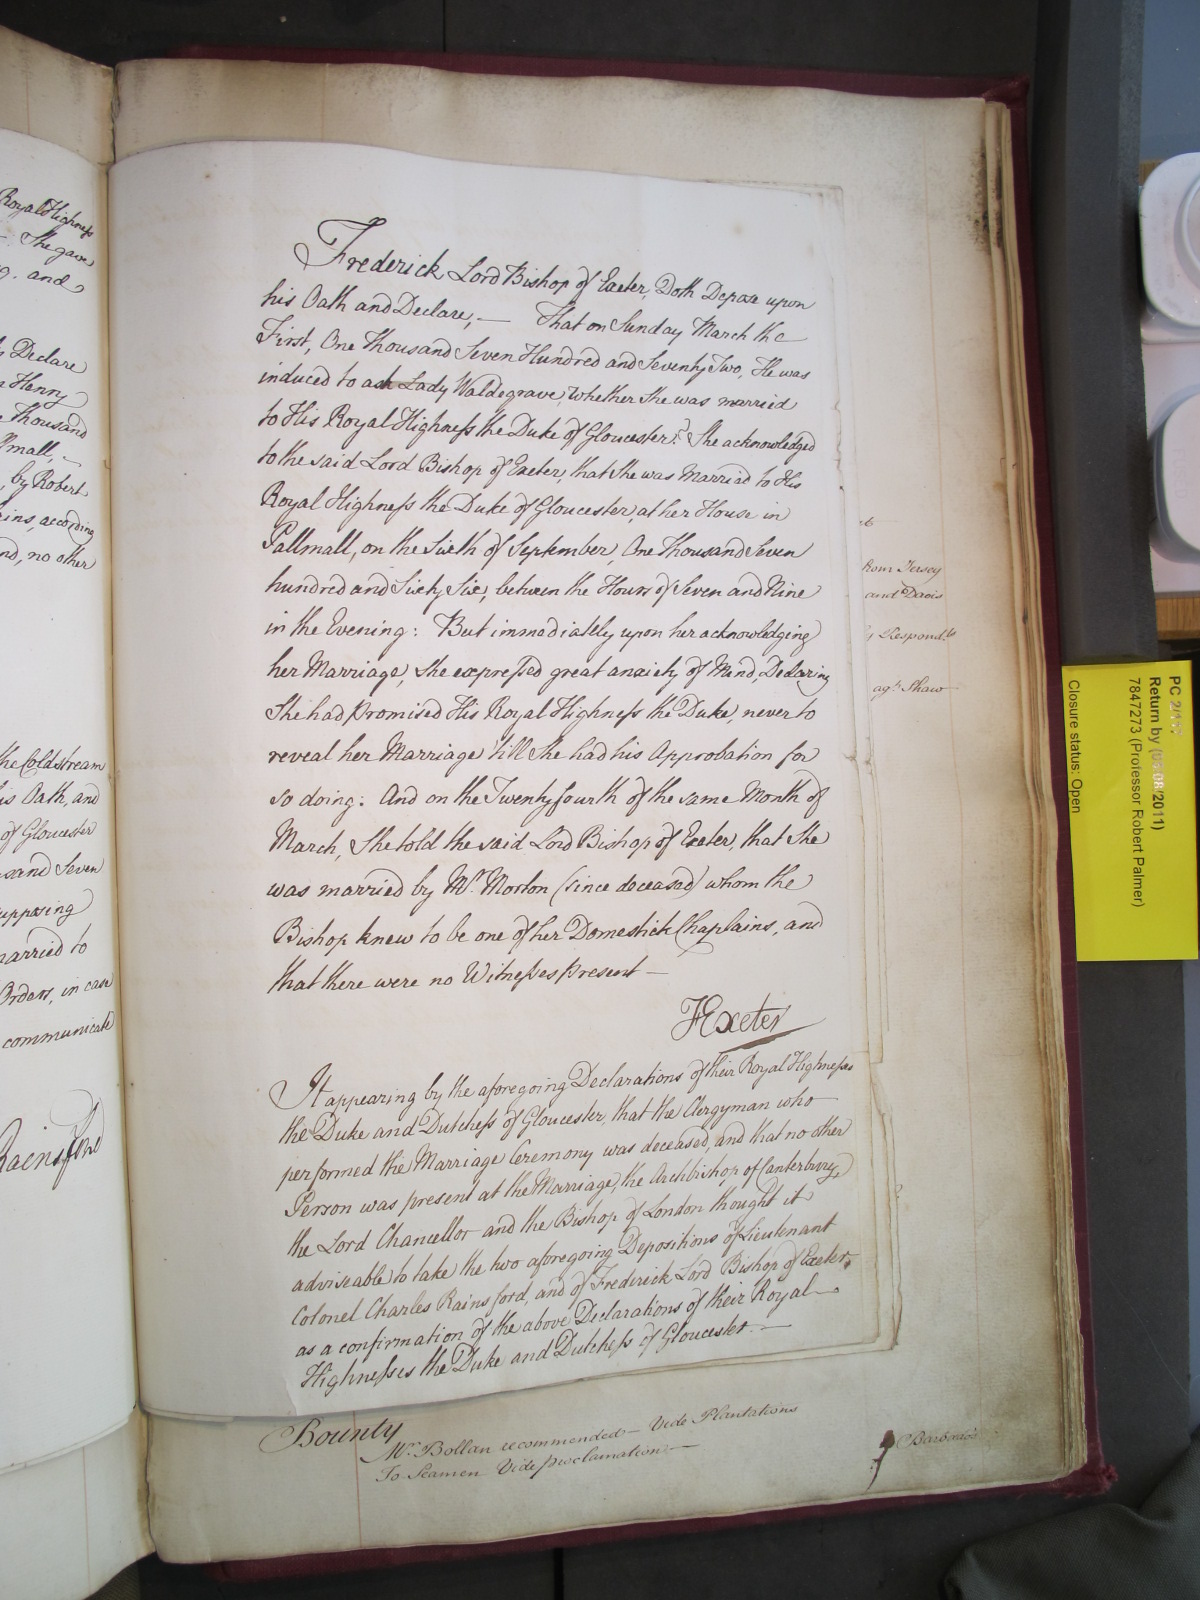 Royal Highness
She gave
and
Declare
Henry
Thousand
Pallmall,
by Robert
according
no other
the Coldstream
his Oath, and
of Gloucester
Seven
supposing
married to
Orders, in case
communicate
Rainsford
Frederick Lord Bishop of Exeter, Doth Depose upon
his Oath and Declare, — That on Sunday March the
First, One Thousand Seven Hundred and Seventy Two, He was
induced to ask Lady Waldegrave, whether she was married
to His Royal Highness the Duke of Gloucester? She acknowledged
to the said Lord Bishop of Exeter, that She was Married to His
Royal Highness the Duke of Gloucester, at her House in
Pallmall, on the Sixth of September, One Thousand Seven
hundred and Sixty Six, between the Hours of Seven and Nine
in the Evening: But immediately upon her acknowledging
her Marriage, She expressed great anxiety of Mind, Declaring
She had Promised His Royal Highness the Duke, never to
reveal her Marriage till She had his Approbation for
so doing: And on the Twenty fourth of the same Month of
March, She told the said Lord Bishop of Exeter, that She
was married by Mr. Morton (since deceased) whom the
Bishop knew to be one of her Domestick Chaplains, and
that there were no Witnesses Present —
F Exeter
It appearing by the aforegoing Declarations of their Royal Highnesses
the Duke and Dutchess of Gloucester, that the Clergyman who
performed the Marriage Ceremony was deceased, and that no other
Person was present at the Marriage, the Archbishop of Canterbury,
the Lord Chancellor and the Bishop of London thought it
adviseable to take the two aforegoing Depositions of Lieutenant
Colonel Charles Rainsford, and of Frederick Lord Bishop of Exeter,
as a confirmation of the above Declarations of their Royal
Highnesses the Duke and Dutchess of Gloucester. —
Bounty
Mr. Bollan recommended — Vide Plantations
To Seamen Vide Proclamation —
from Jersey
and Davis
Respond.ts
agt. Shaw
Barbados
PC 2/117
Return by (05/08/2011)
7847273 (Professor Robert Palmer)
Closure status: Open